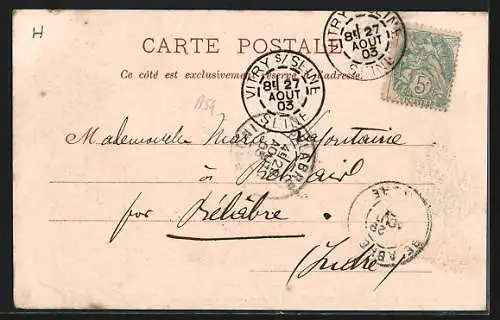 H
CARTE POSTALE
Ce côté est exclusivement réservé à l'adresse.
VITRY S/ SEINE
8E 27
AOUT
03
SEINE
VITRY S/ SEINE
8E 27
AOUT
03
SEINE
5c
Mademoiselle Marie Lafontaine
à
par Bélâbre
(Indre)